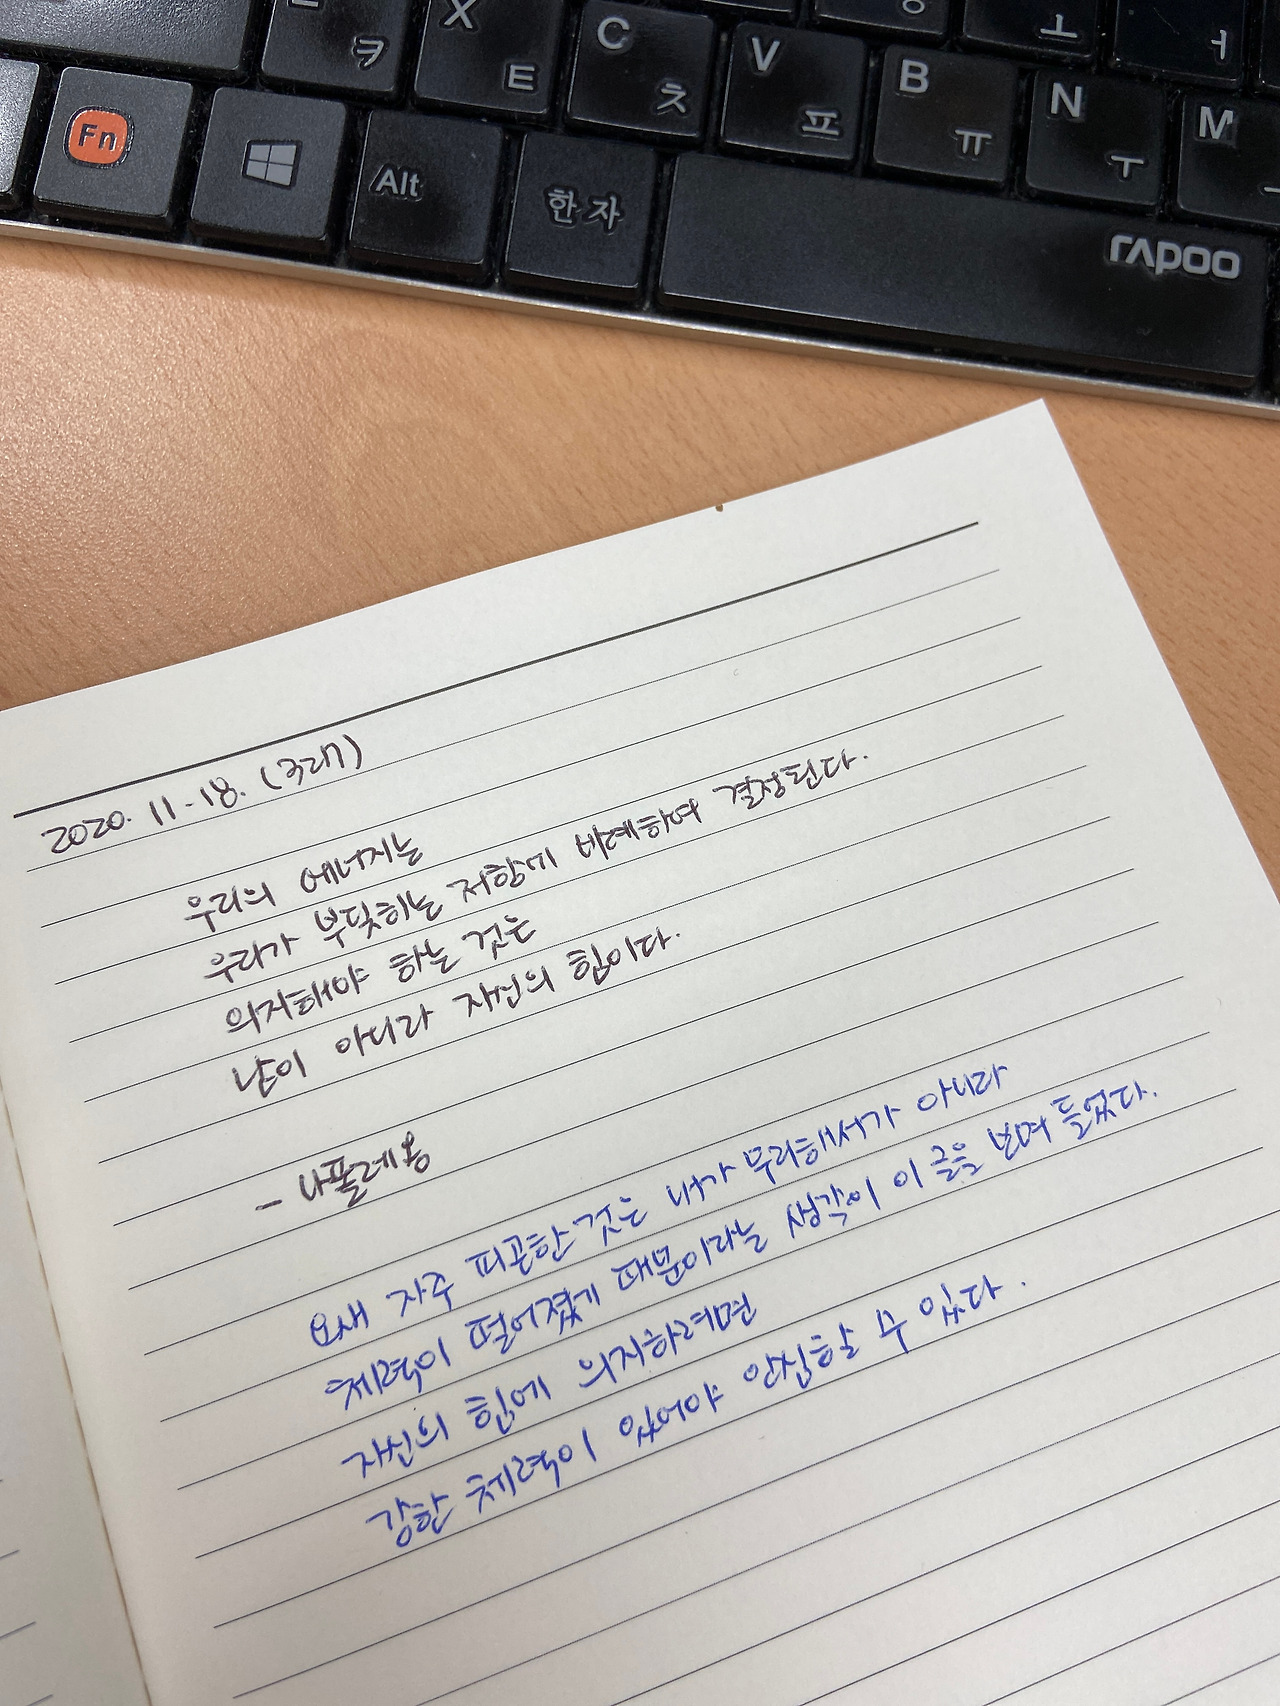 X ㅋ ㅌ
C ㅊ
V ㅍ
B ㅠ
N ㅜ
M
ㅗ
ㅓ
Fn
Alt
한자
rapoo
2020. 11. 18.
우리의 에너지는
우리가 부딪히는 저항에 비례하여 결정된다.
의지해야 하는 것은
남이 아니라 자신의 힘이다.
- 나폴레옹
요새 자주 피곤한 것은 내가 무리해서가 아니라
체력이 떨어졌기 때문이라는 생각이 이 글을 보며 들었다.
자신의 힘에 의지하려면
강한 체력이 있어야 안심할 수 있다.